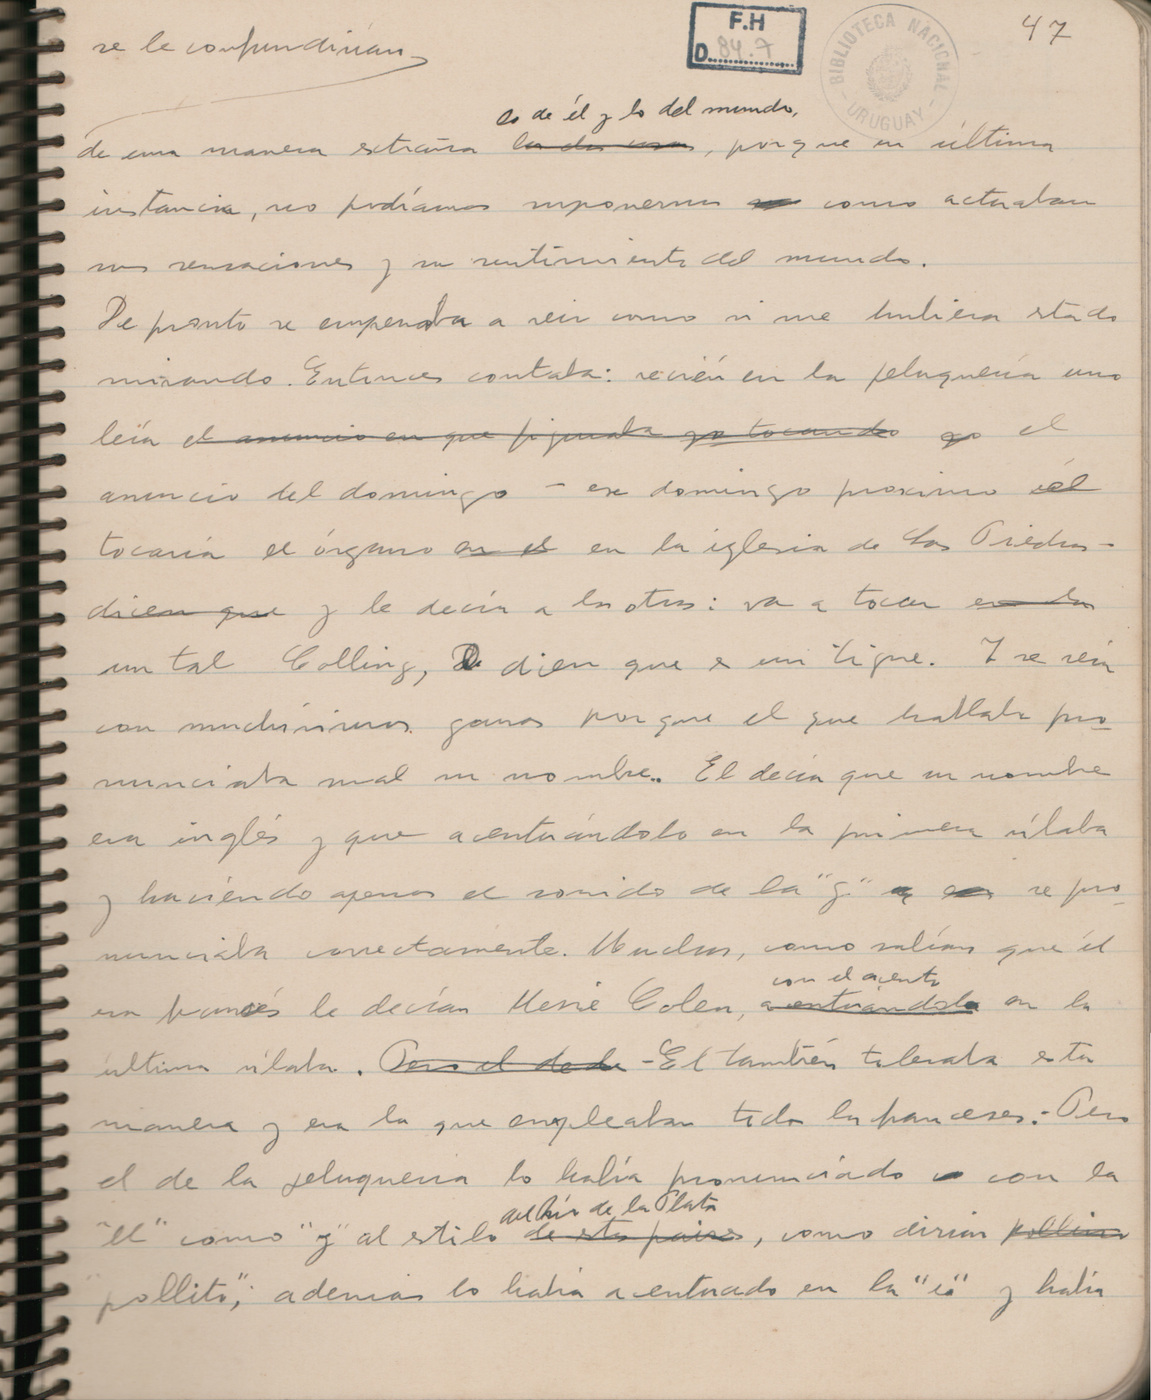 47
F.H
D. 84.7
BIBLIOTECA NACIONAL
URUGUAY
se le confundirían
lo de él y lo del mundo,
de una manera extraña las dos cosas, porque en última
instancia, no podíamos suponernos como actuaban
sus sensaciones y su sentimiento del mundo.
De pronto se empezaba a reir como si me hubiera estado
mirando. Entonces contaba: recién en la peluquería uno
leía el anuncio en que figuraba yo tocando el
anuncio del domingo - ese domingo proximo él
tocaría el órgano en el en la iglesia de Las Piedras -
dicen que y le decía a los otros: va a tocar en las
un tal Colling, dicen que es un tigre. Y se reía
con muchísimas ganas porque el que hablaba pro
nunciaba mal su nombre. El decía que su nombre
era inglés y que acentuándolo en la primera sílaba
y haciendo apenas el sonido de la "g" se pro
nunciaba correctamente. Muchos, como sabían que él
con el acento
era francés le decían Mesié Colen, acentuándolo en la
última sílaba. Pero el de la - El también toleraba esta
manera y era la que empleaban todos los franceses. - Pero
el de la peluquería lo había pronunciado con la
del Río de la Plata
"ll" como "y" al estilo de estos paises, como dirían pollito
"pollito"; además lo había acentuado en la "i" y había